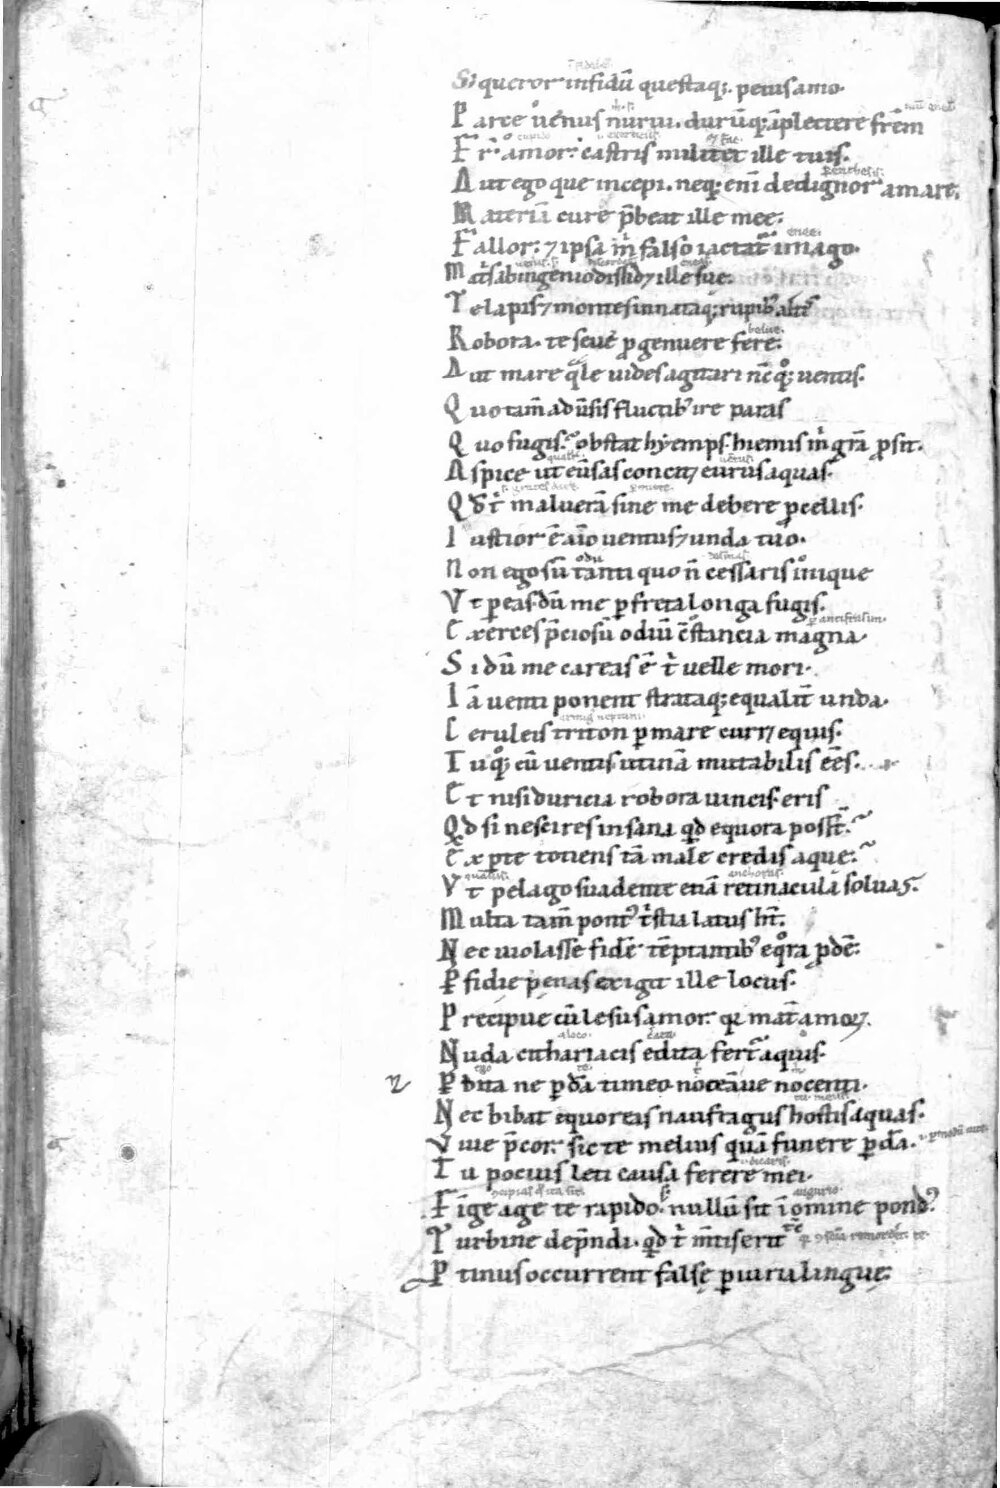 Si queror infidū questaq; peius amo.
Parce uenus nurui. durūq; āplectere frēm
Fr̄. amor. castris militet ille tuis.
Aut ego que incepi. neq; eni dedignor amare.
Materiā cure p̄beat ille mee.
Fallor. ⁊ ipsa m̄ falso iactat̄ imago.
Mat̄s ab ingenio dissid⁊ ille sue.
Te lapis ⁊ montes innataq; rupib' altis
Robora. te seue ꝓgenuere fere.
Aut mare q̄le uides agitari nc̄ q̊; uentis.
Quo tam̄ aduersis fluctib' ire paras
Quo fugis. obstat hyemps. hiemis m̄ grā ꝓsit.
Aspice ut eūsas concit⁊ eurus aquas.
Qd̄ t̄ malueram sine me debere ꝓcellis.
Iustior ē aīo uentus ⁊ unda tuo.
Non ego sū tanti quo n̄ cessaris inique
Vt peas. dū me p freta longa fugis.
Exerces p̄ciosū odiū ⁊ c̄stancia magna.
Si dū me careas ē t̄ uelle mori.
Iā uenti ponent strataq; equalit̄ unda.
Ceruleis triton p mare curr⁊ equis.
Tu q̊; cū uentis utinā mutabilis eēs.
Et nisi duricia robora uincis. eris
Qd si nescires insana qd equora poss̄t.
Exp̱te totiens tā male credis aque.
Vt pelago suadente etiā retinacula soluas.
Multa tam̄ pont' t̄stia latus h̄t.
Nec uiolasse fidē tēptantib' eq̊ra ꝓdē.
Pfidie penas exigit ille locus.
Precipue cū lesus amor. q̄ mat̄ amoꝝ.
Nuda cithariacis edita fert̄ aquis.
Pdita ne pdā timeo noceāue nocenti.
Nec bibat equoreis naufragus hostis aquas.
Viue p̄cor. sic te melius quā funere pdā.
Tu pocius leti causa ferere mei.
Finge age te rapido. nullū sit ī omine pond'.
Turbine dep̄ndi. qd t̄ m̄tis erit
Ptinus occurrent false piuria lingue.